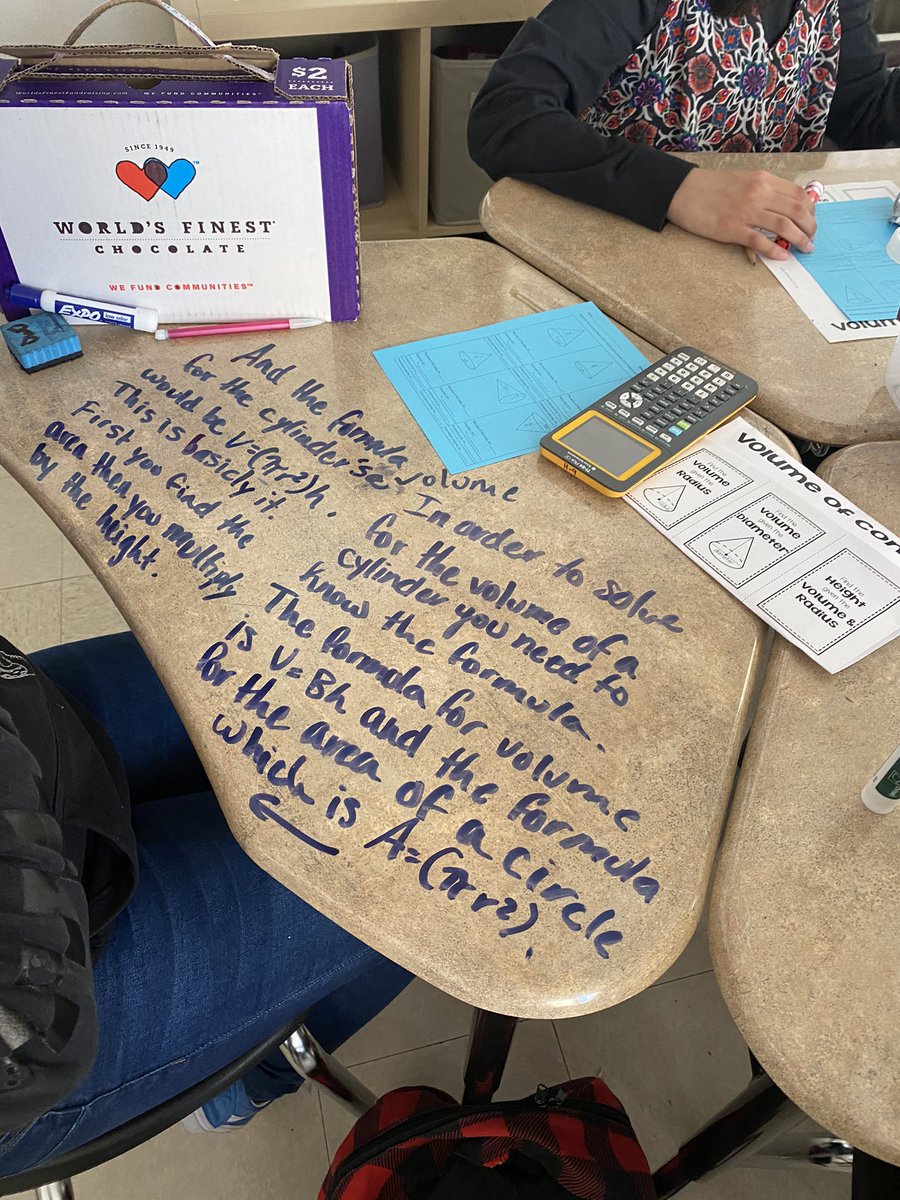 $2
EACH
WE FUND COMMUNITIES
SINCE 1949
WORLD'S FINEST
CHOCOLATE
WE FUND COMMUNITIES™
EXPO low odor
In order to solve
for the volume of a
cylinder you need to
know the formula.
The formula for volume
is V=Bh and the formula
for the area of a circle
which is A=(πr2).
And the formula
for the cylinder's volume
would be V=(πr2)h.
This is basicly it.
First you find the
area then you multiply
by the height.
Volume of Con
Find the
given the
Volume
Radius
Find the
Volume
given the
Diameter
Find the
Height
given the
Volume &
Radius
Volum